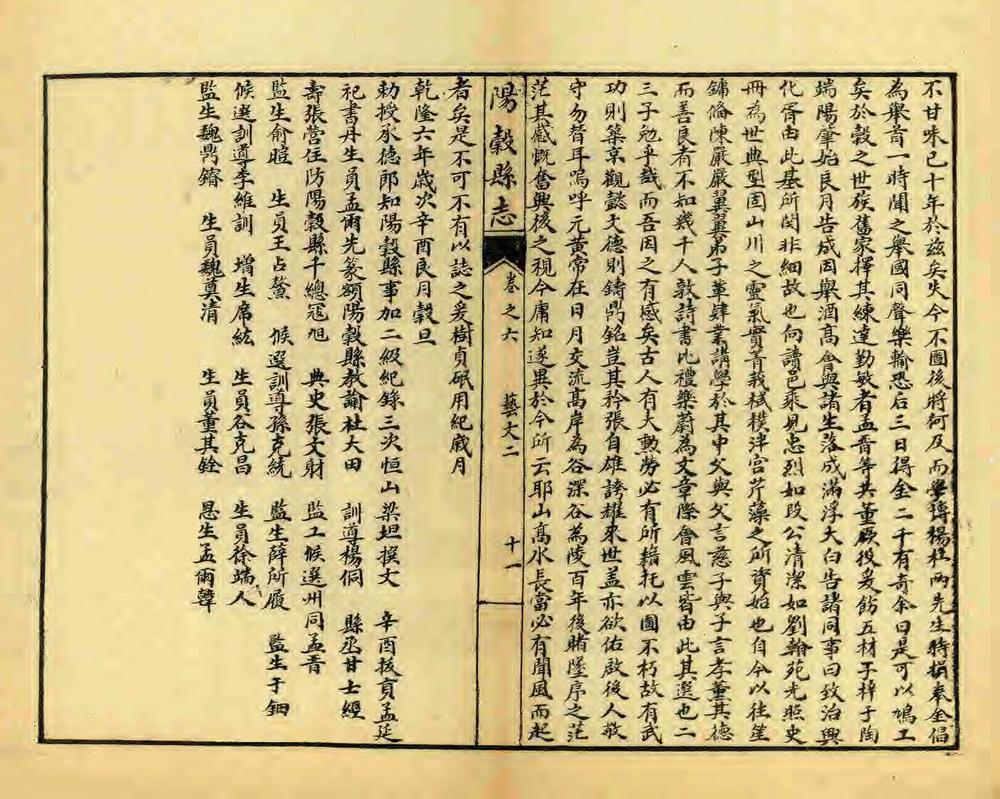 不甘味已十年於兹矣失今不圖後將何及而學博楊杜兩先生特捐奉金倡
為舉首一時聞之舉國同聲樂輸恐后三日得金二千有奇余曰是可以鳩工
矣於穀之世族舊家擇其練達勤敏者孟晋等共董厥役爰飭五材于梓于陶
端陽肇始良月告成因舉酒髙會與諸生落成滿浮大白告諸同事曰致治興
化胥由此基所関非細故也向讀邑乘見忠烈如段公清潔如劉翰苑光照史
冊為世典型固山川之靈氣實菁莪棫樸泮宫芹藻之所資始也自今以往笙
鏞脩陳嚴嚴翼翼弟子革肆業講學於其中父與父言慈子與子言孝董其德
而善良者不知幾千人敦詩書比禮樂蔚為文章際會風雲皆由此其選也二
三子勉乎哉而吾因之有感矣古人有大勲勞必有所籍托以圖不朽故有武
功則築京觀懿文德則鋳鼎銘豈其矜張自雄誇耀來世盖亦欲佑啟後人敬
守勿替耳嗚呼元黄常在日月交流髙岸為谷深谷為陵百年後賭墜序之茫
茫其感慨奮興後之視今庸知遂異於今所云耶山髙水長當必有聞風而起
陽穀縣志 卷之六 藝文二 十一
者矣是不可不有以誌之爰樹貞砥用紀歲月
乾隆六年歲次辛酉良月穀旦
勅授承德郎知陽穀縣事加二級紀錄三次恒山梁坦撰文 辛酉拔貢孟延
祀書丹生員孟爾先篆額陽穀縣教諭社大田 訓導楊侗 縣丞甘士經
壽張营住防陽穀縣千總冦旭 典史張文財 監工候選州同孟晋
監生俞暄 生員王占鰲 候選訓導孫克統 監生薛所履 監生于鈿
候選訓導李維訓 增生席紘 生員谷克昌 生員徐端人
監生魏鼎鑇 生員魏奠清 生員董其銓 恩生孟爾韡